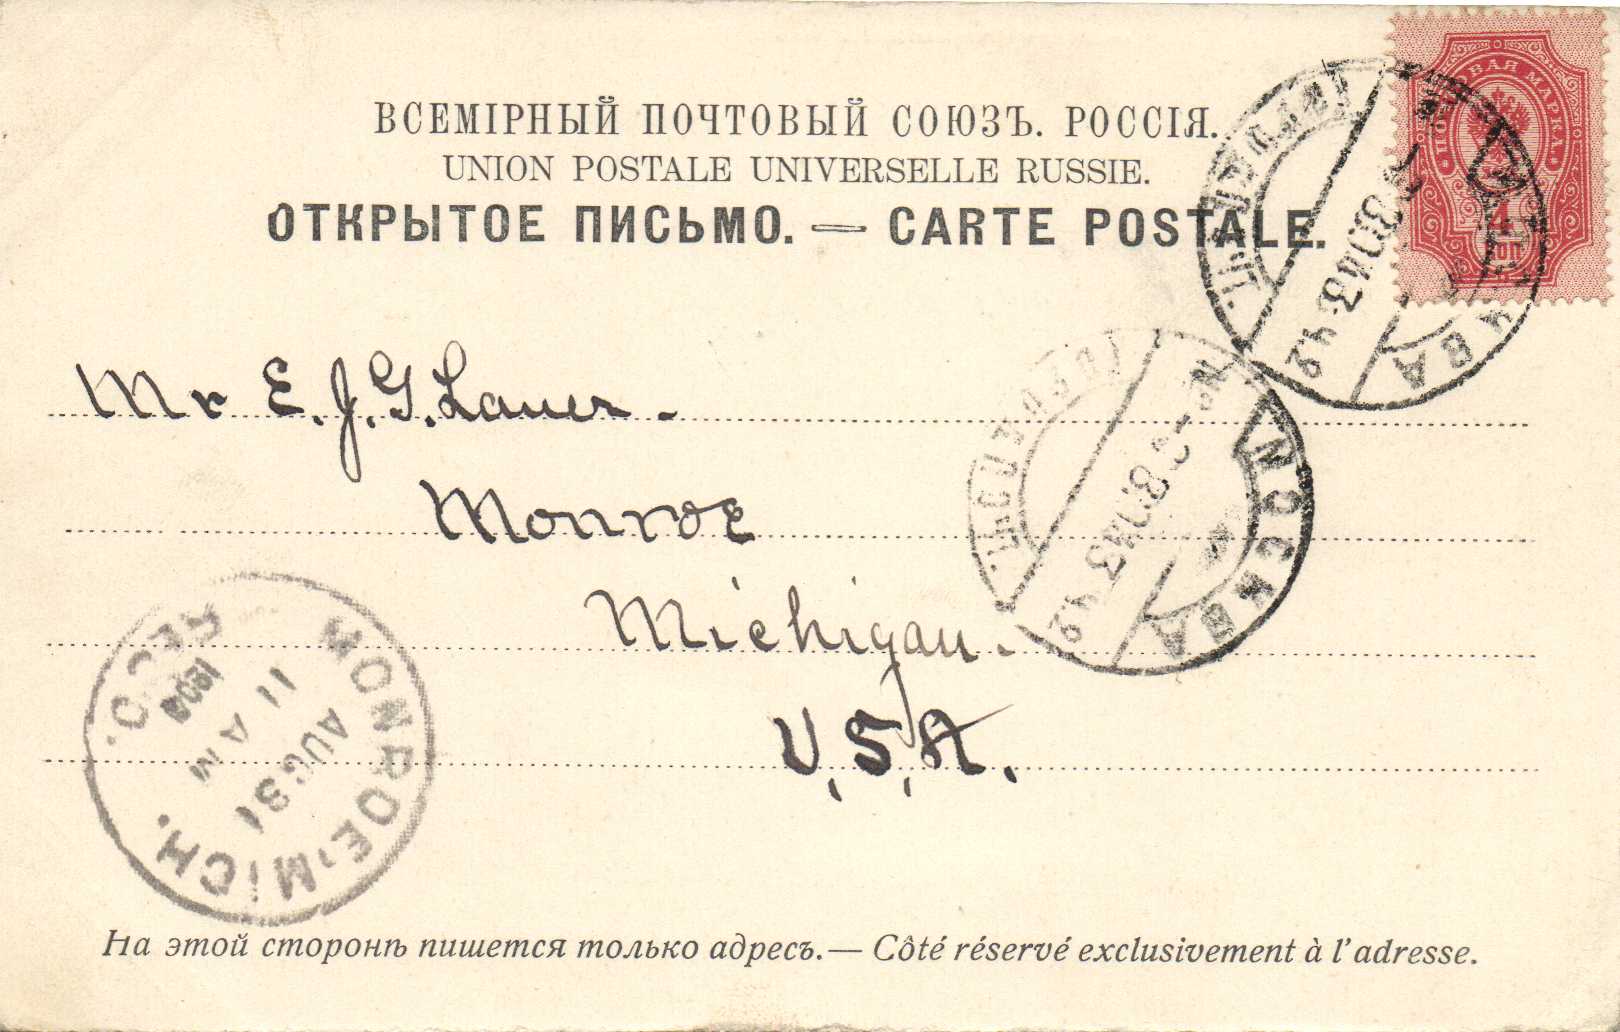 ВСЕМІРНЫЙ ПОЧТОВЫЙ СОЮЗЪ. РОССІЯ.
UNION POSTALE UNIVERSELLE RUSSIE.
ОТКРЫТОЕ ПИСЬМО. — CARTE POSTALE.
ПОЧТОВАЯ МАРКА
4
КОП
МОСКВА
Mr E. J. G. Lauer.
Monroe
Michigan.
U.S.A.
МОСКВА
MONROE, MICH.
AUG 31
11 AM
REC'D.
На этой сторонѣ пишется только адресъ.— Côté réservé exclusivement à l'adresse.